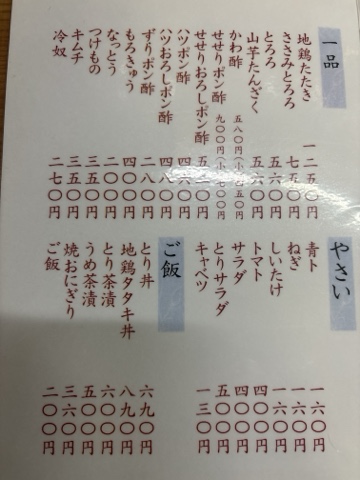 一品
地鶏たたき 一二五〇円
ささみとろろ 七五〇円
とろろ 五六〇円
山芋たんざく 五六〇円
かわ酢 五八〇円
せせりポン酢 九〇〇円(小)七〇〇円
せせりおろしポン酢
ハツポン酢 四六〇円
ハツおろしポン酢 四八〇円
ずりポン酢 二八〇円
もろきゅう 四〇〇円
なっとう 二五〇円
つけもの 三五〇円
キムチ 三五〇円
冷奴 二七〇円
やさい
青ト 一六〇円
ねぎ 一六〇円
しいたけ 一六〇円
トマト 四〇〇円
サラダ 四〇〇円
とりサラダ 五〇〇円
キャベツ 一三〇円
ご飯
とり丼 六九〇円
地鶏タタキ丼 八九〇円
とり茶漬 六〇〇円
うめ茶漬 五〇〇円
焼おにぎり 三六〇円
ご飯 二〇〇円